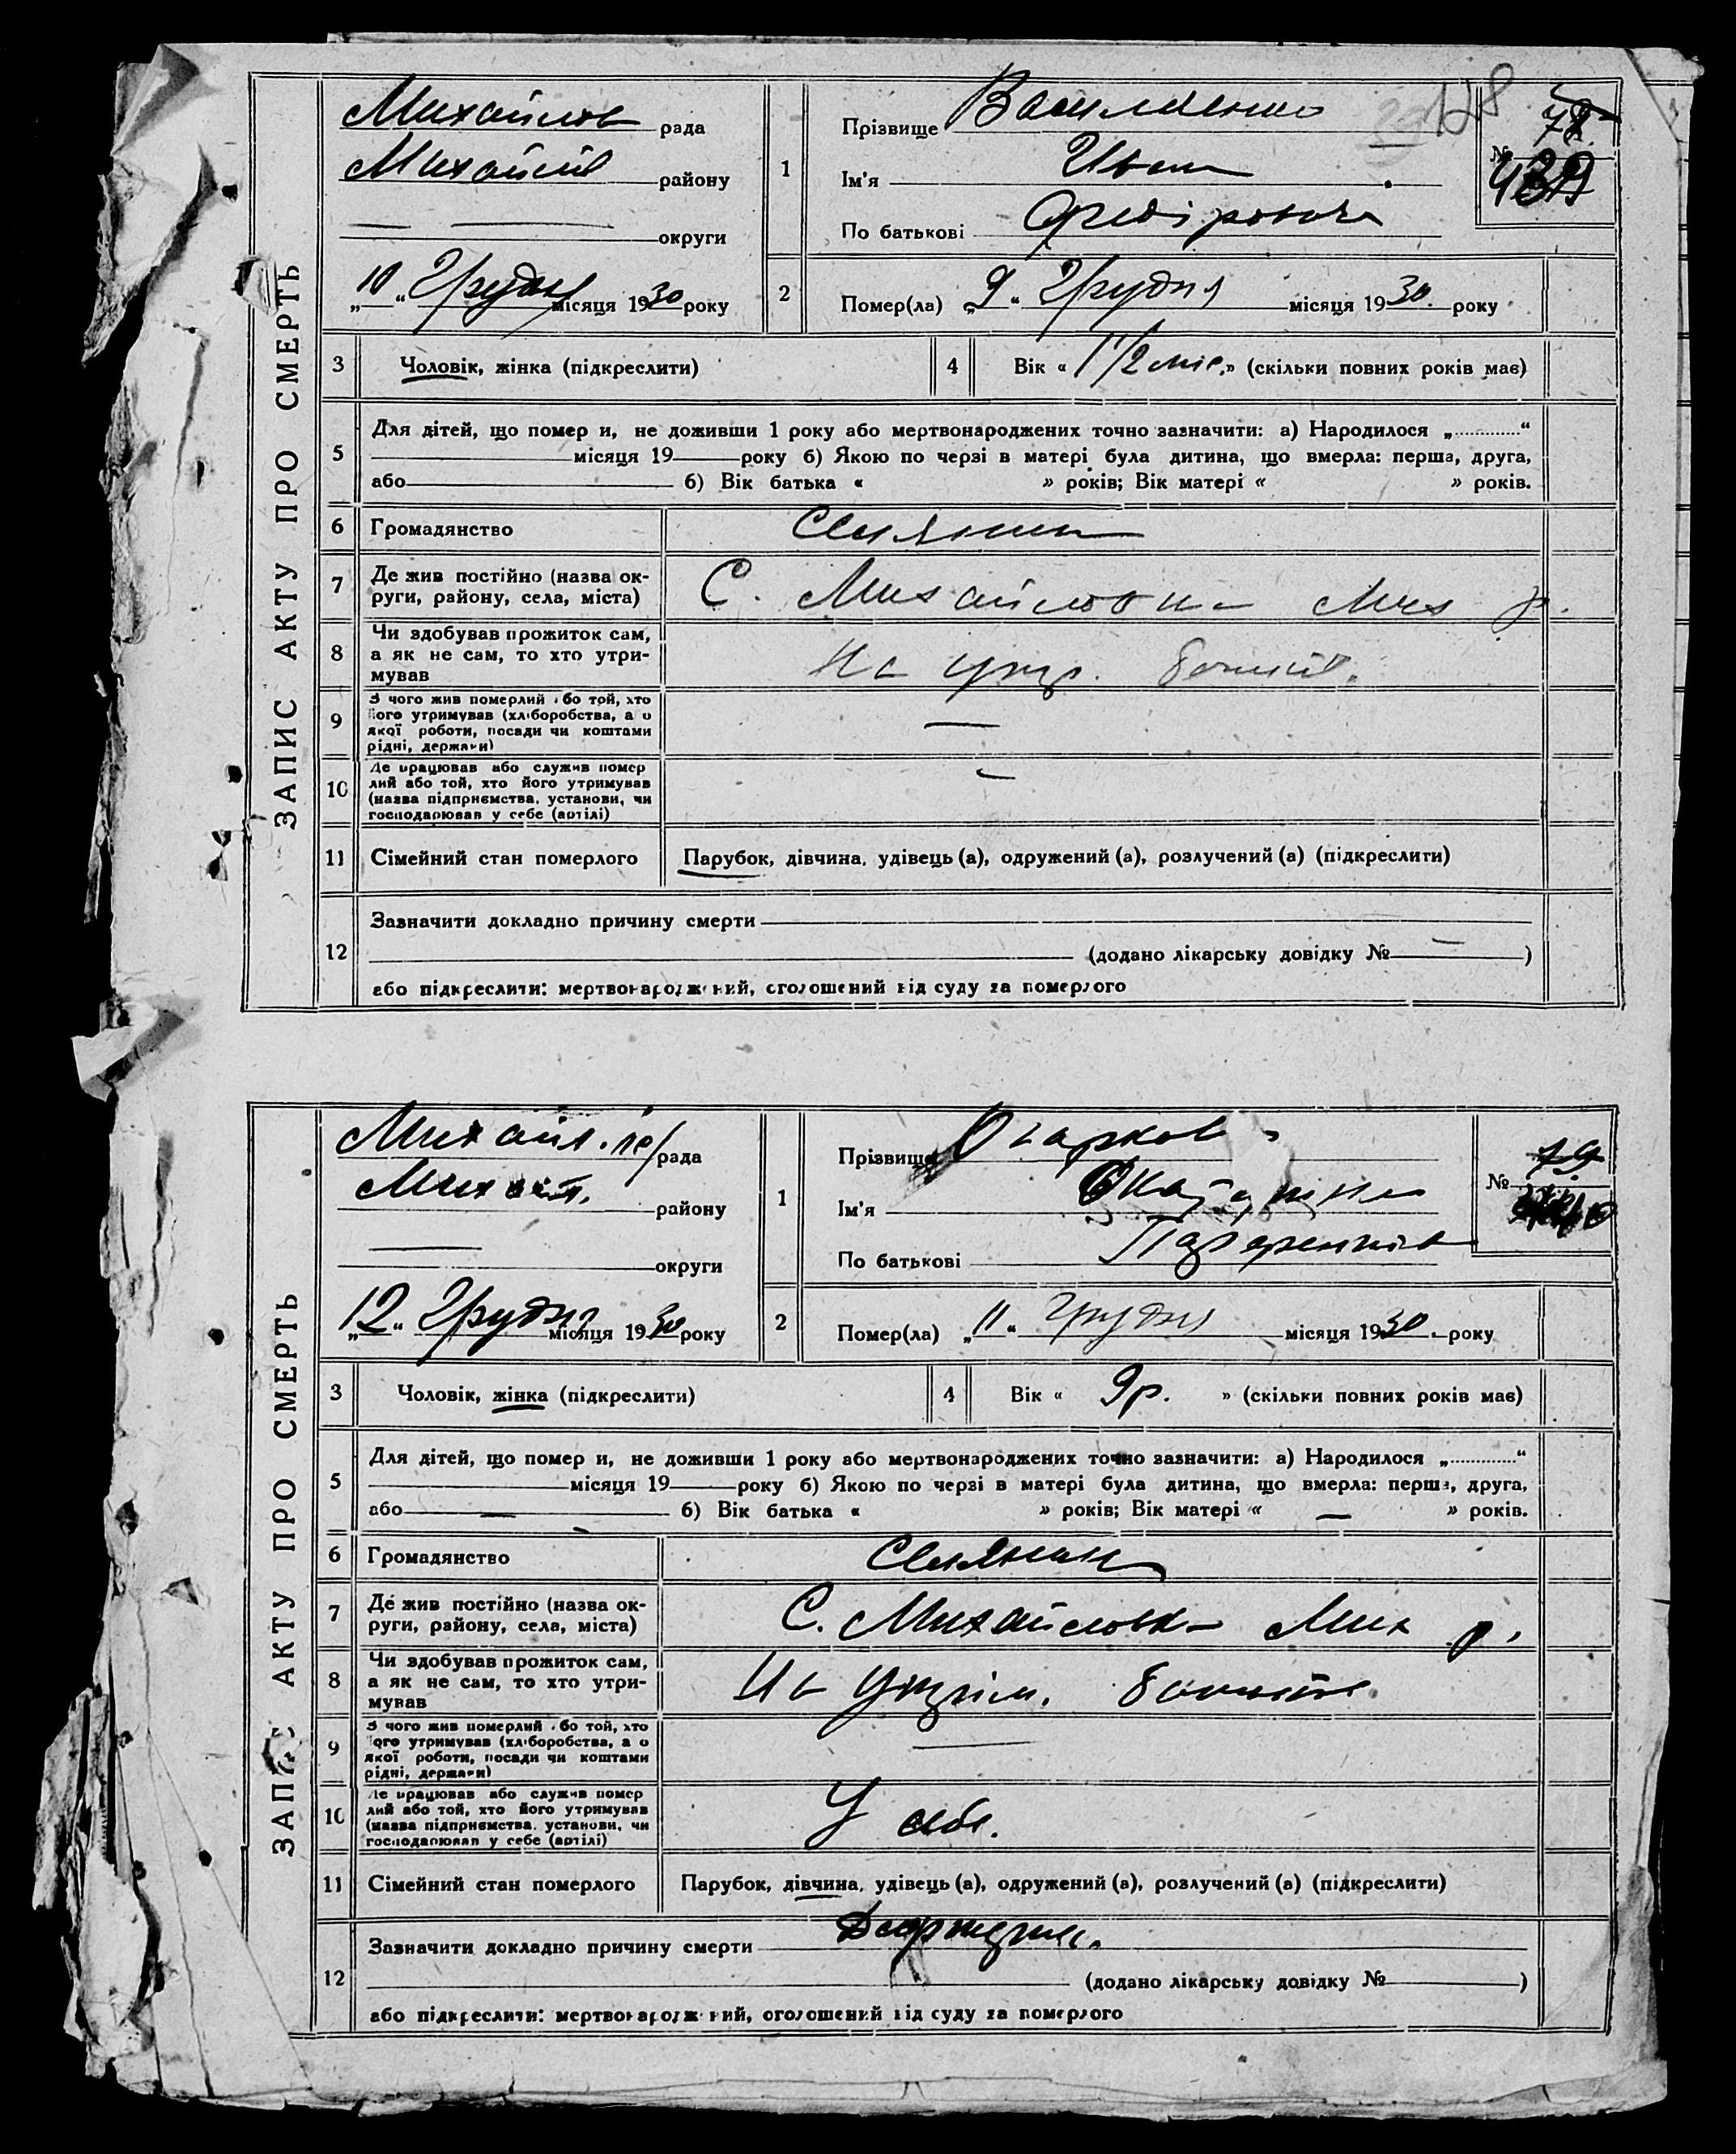 ЗАПИС АКТУ ПРО СМЕРТЬ
128
Михайлов рада
Михайлів району
округи
„10“ Грудня місяця 1930 року
1
Прізвище Василенко
Ім'я Иван
По батькові Федірович
№ 78
2
Помер(ла) „9“ Грудня місяця 1930 року
3 Чоловік, жінка (підкреслити)
4 Вік « 1 1/2 міс. » (скільки повних років має)
5 Для дітей, що помер и, не доживши 1 року або мертвонароджених точно зазначити: а) Народилося „ “
місяця 19 року б) Якою по черзі в матері була дитина, що вмерла: перша, друга,
або б) Вік батька « » років; Вік матері « » років.
6 Громадянство Селянин
7 Де жив постійно (назва ок-
руги, району, села, міста) С. Михайловка Мих р.
8 Чи здобував прожиток сам,
а як не сам, то хто утри-
мував На утр. батьків.
9 З чого жив померлий або той, хто
його утримував (хліборобства, а о
якої роботи, посади чи коштами
рідні, держави) —
10 Де працював або служив помер
лий або той, хто його утримував
(назва підприємства, установи, чи
господарював у себе (артілі) -
11 Сімейний стан померлого Парубок, дівчина, удівець (а), одружений (а), розлучений (а) (підкреслити)
12 Зазначити докладно причину смерти
(додано лікарську довідку № — )
або підкреслити: мертвонароджений, оголошений від суду за померлого
ЗАПИС АКТУ ПРО СМЕРТЬ
Михайл. рада
Михайл. району
округи
„12“ Грудня місяця 1930 року
1
Прізвище
Ім'я
По батькові
№ 79
2
Помер(ла) „11“ Грудня місяця 1930. року
3 Чоловік, жінка (підкреслити)
4 Вік « 9 р. » (скільки повних років має)
5 Для дітей, що помер и, не доживши 1 року або мертвонароджених точно зазначити: а) Народилося „ “
місяця 19 року б) Якою по черзі в матері була дитина, що вмерла: перша, друга,
або — б) Вік батька « » років; Вік матері « — » років.
6 Громадянство Селянин
7 Де жив постійно (назва ок-
руги, району, села, міста) С. Михайловка Мих р.
8 Чи здобував прожиток сам,
а як не сам, то хто утри-
мував На утрим. батьків
9 З чого жив померлий або той, хто
його утримував (хліборобства, а о
якої роботи, посади чи коштами
рідні, держави) —
10 Де працював або служив помер
лий або той, хто його утримував
(назва підприємства, установи, чи
господарював у себе (артілі) У себе.
11 Сімейний стан померлого Парубок, дівчина, удівець (а), одружений (а), розлучений (а) (підкреслити)
12 Зазначити докладно причину смерти
(додано лікарську довідку № )
або підкреслити: мертвонароджений, оголошений від суду за померлого